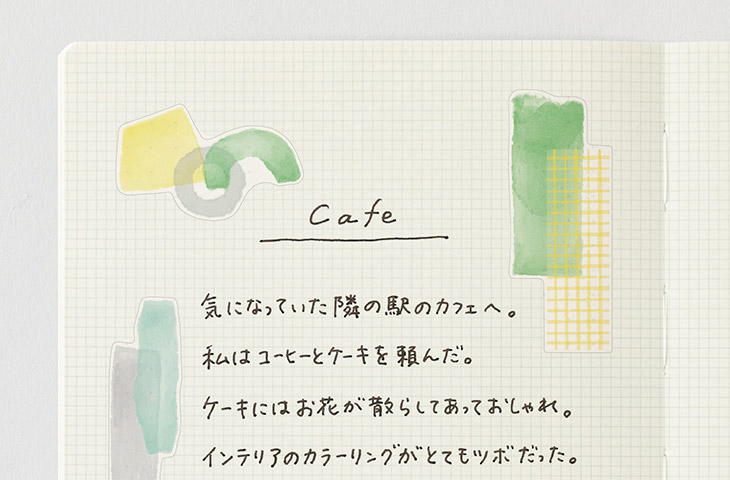 Cafe
気になっていた隣の駅のカフェへ。
私はコーヒーとケーキを頼んだ。
ケーキにはお花が散らしてあっておしゃれ。
インテリアのカラーリングがとてもツボだった。